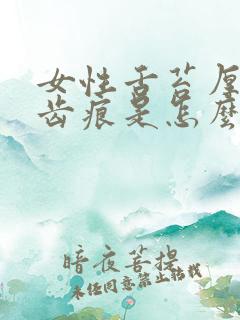 女性舌苔厚
齿痕是怎麼
暗夜菩提
未经同意禁止转载